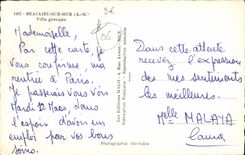 1267 - BEAULIEU-SUR-MER (A.-M.)
Villa grecque
3€
06
Mademoiselle,
Par cette carte, je
vous confirme, ma
rentrée à Paris.
Je passerais vous voir
Mardi 12 Mars dans
l'espoir d'avoir un
emploi par vos bons
soins.
Dans cette attente
recevez l'expression
de mes sentiments
les meilleurs.
Melle MALAYA
Laura
Photographie Véritable